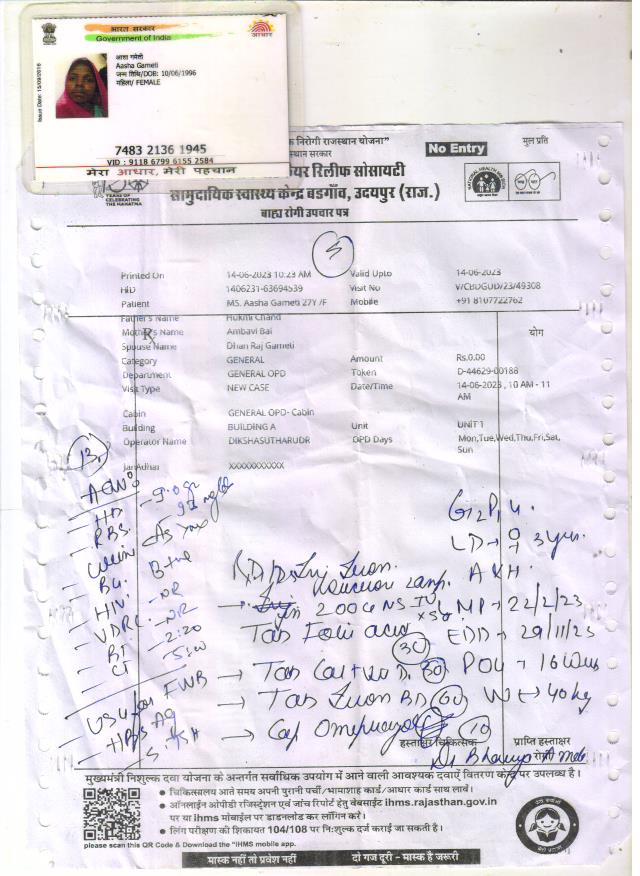 भारत सरकार
Government of India
आधार
Issue Date: 15/09/2016
आशा गमेती
Aasha Gameti
जन्म तिथि/DOB: 10/06/1996
महिला/ FEMALE
7483 2136 1945
VID : 9118 6799 6155 2584
मेरा आधार, मेरी पहचान
निरोगी राजस्थान योजना"
No Entry
मूल प्रति
स्थान सरकार
यर रिलीफ सोसायटी
YEARS OF
CELEBRATING
THE MAHATMA
सामुदायिक स्वास्थ्य केन्द्र बडगाँव, उदयपुर (राज.)
बाह्य रोगी उपचार पत्र
5
Printed On 14-06-2023 10:23 AM Valid Upto 14-06-2023
HID 1406231-63694539 Visit No V/CBDGUD/23/49308
Patient MS. Aasha Gameti 27Y /F Mobile +91 8107722762
Father's Name Hukmi Chand
Mother's Name Ambavi Bai
Rx
योग
Spouse Name Dhan Raj Gameti
Category GENERAL Amount Rs.0.00
Department GENERAL OPD Token D-44629-00188
Visit Type NEW CASE Date/Time 14-06-2023 , 10 AM - 11
AM
Cabin GENERAL OPD- Cabin
Building BUILDING A Unit UNIT 1
Operator Name DIKSHASUTHARUDR OPD Days Mon,Tue,Wed,Thu,Fri,Sat,
Sun
JanAadhar XXXXXXXXXXX
13
HB - 9.0 gr
RBS.
BG B+ve
HIV - NR
VDRL - NR
BT - 2:20
CT
G2P1
LD → 3 yrs.
200 NS IV
LMP → 22/2/23
Tab Folic acid 30
EDD → 29/11/23
→ Tab Cal + Vit D. 30
POG → 16 wks
→ Tab BD 60
Wt → 40 kg
→ Cap Omeprazole 10
USG for FWB
HBsAg
S. TSH
हस्ताक्षर चिकित्सक
प्राप्ति हस्ताक्षर
मुख्यमंत्री निशुल्क दवा योजना के अन्तर्गत सर्वाधिक उपयोग में आने वाली आवश्यक दवाऐं वितरण केंद्र पर उपलब्ध है।
• चिकित्सालय आते समय अपनी पुरानी पर्ची/भामाशाह कार्ड/आधार कार्ड साथ लावें।
• ऑनलाईन ओपीडी रजिस्ट्रेशन एवं जांच रिपोर्ट हेतु वेबसाईट ihms.rajasthan.gov.in
पर या ihms मोबाईल पर डाउनलोड कर लॉगिन करें।
• लिंग परीक्षण की शिकायत 104/108 पर नि:शुल्क दर्ज कराई जा सकती है।
please scan this QR Code & Download the "IHMS mobile app.
मास्क नहीं तो प्रवेश नहीं दो गज दूरी - मास्क है जरूरी